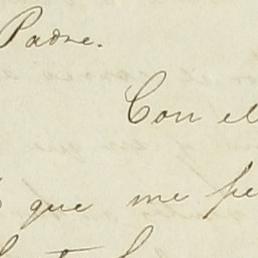 Padre.
Con el
que me pe